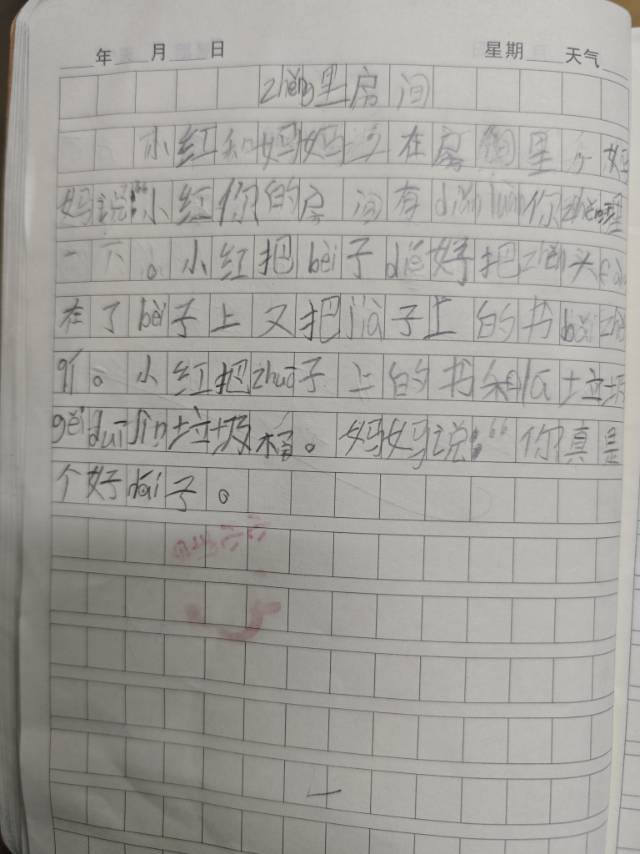 年 月 日 星期 天气
zhěng里房间
小红和妈妈 在房间里，妈
妈说：“小红你的房间有diǎn luàn你zhěng理
一下。小红把bèi子dié好把zhěn头
在了bèi子上又把jià子上的书bǎi zhěng
qí。小红把zhuō子上的书和la垃圾
gěi diū jìn垃圾桶。妈妈说：“你真是
个好hái子。